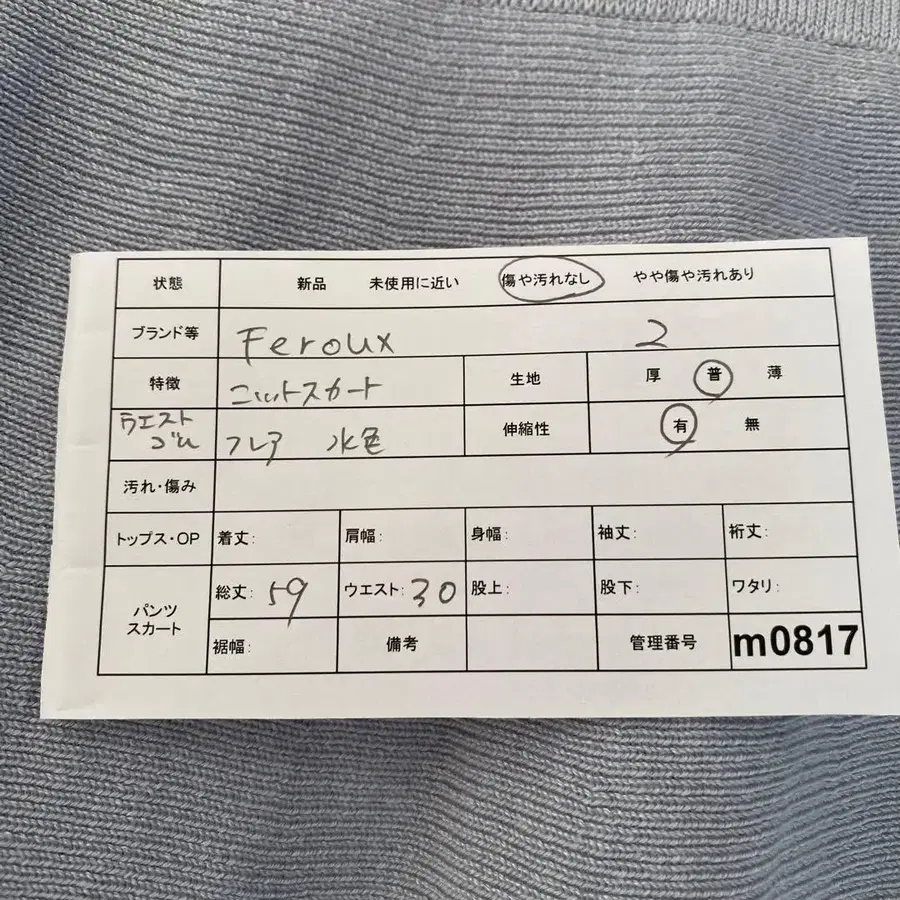 状態 新品 未使用に近い 傷や汚れなし やや傷や汚れあり
ブランド等 Feroux 2
特徴 ニットスカート 生地 厚 普 薄
ウエストゴム フレア 水色 伸縮性 有 無
汚れ・傷み
トップス・OP 着丈: 肩幅: 身幅: 袖丈: 裄丈:
パンツ スカート 総丈: 59 ウエスト: 30 股上: 股下: ワタリ:
裾幅: 備考 管理番号 m0817